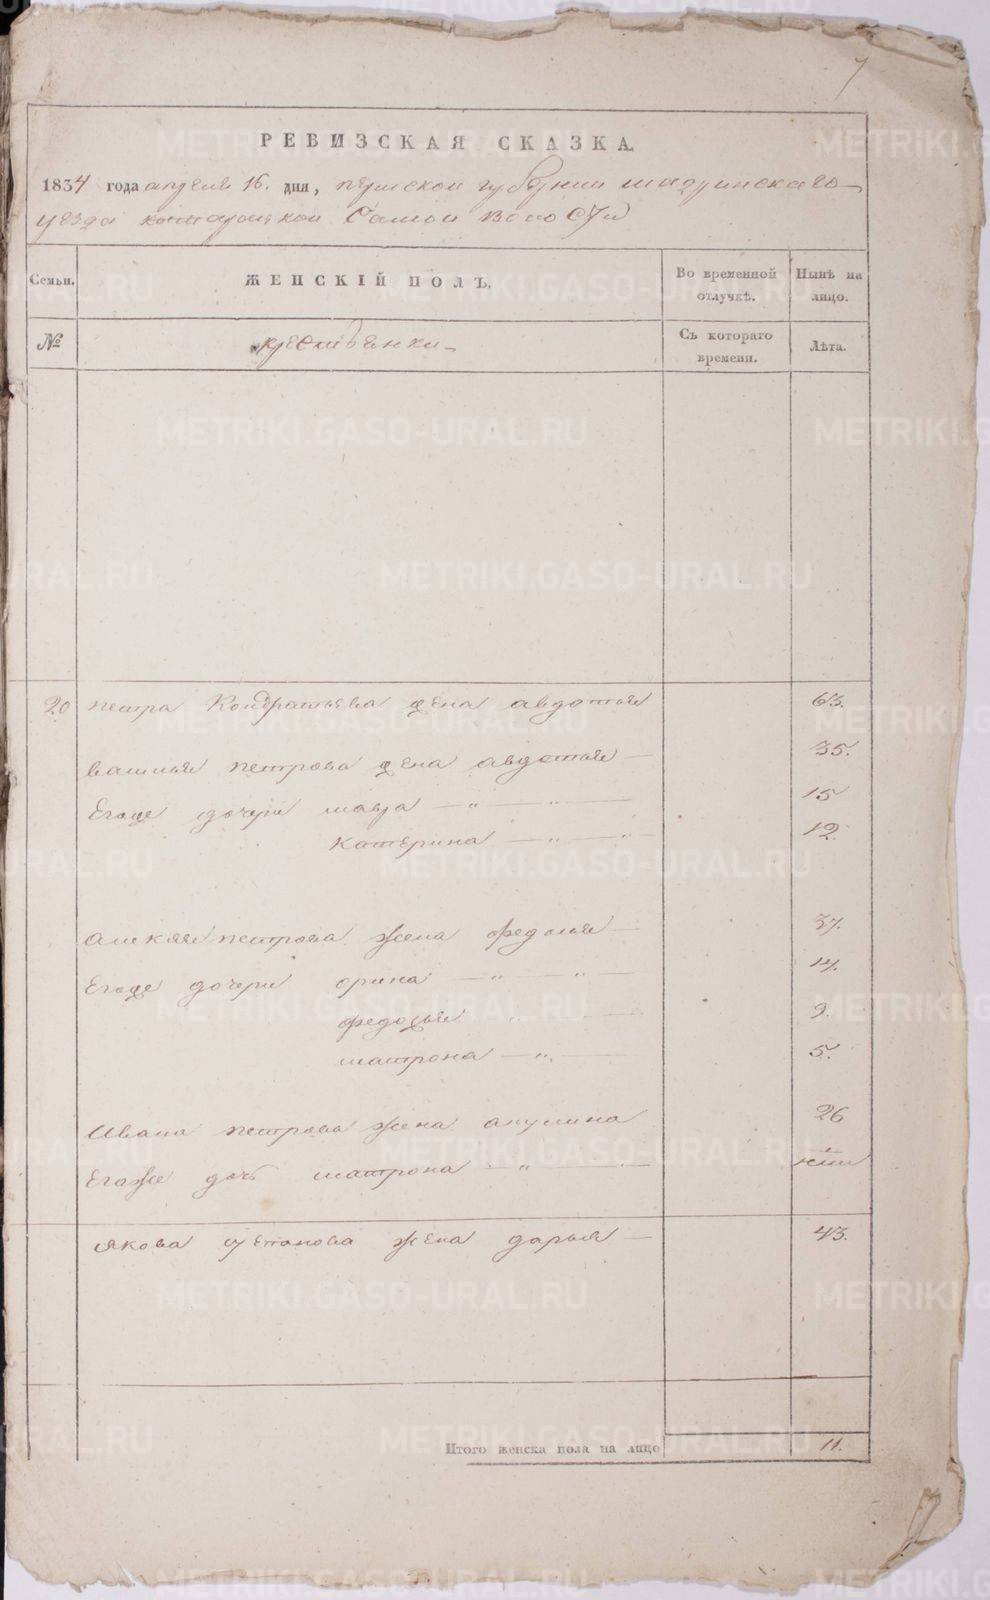 7
РЕВИЗСКАЯ СКАЗКА.
1834 года апреля 16. дня, пермской губернии шадринскаго
уезда самой волости
Семьи.
ЖЕНСКІЙ ПОЛЪ.
Во временной отлучкѣ.
Нынѣ на лицо.
№
крестьянки
Съ котораго времени.
Лѣта.
20 петра Кондратьева жена авдотья 63.
василья петрова жена авдотья 35.
Егоже дочери мавра 15
катерина 12.
алексея петрова жена федосья 37.
Егоже дочери орина 14.
федосья 9.
матрона 5.
Ивана петрова жена акулина 26
Егоже дочь матрона
якова степанова жена дарья 43.
Итого женска пола на лицо 11.
METRIKI.GASO-URAL.RU